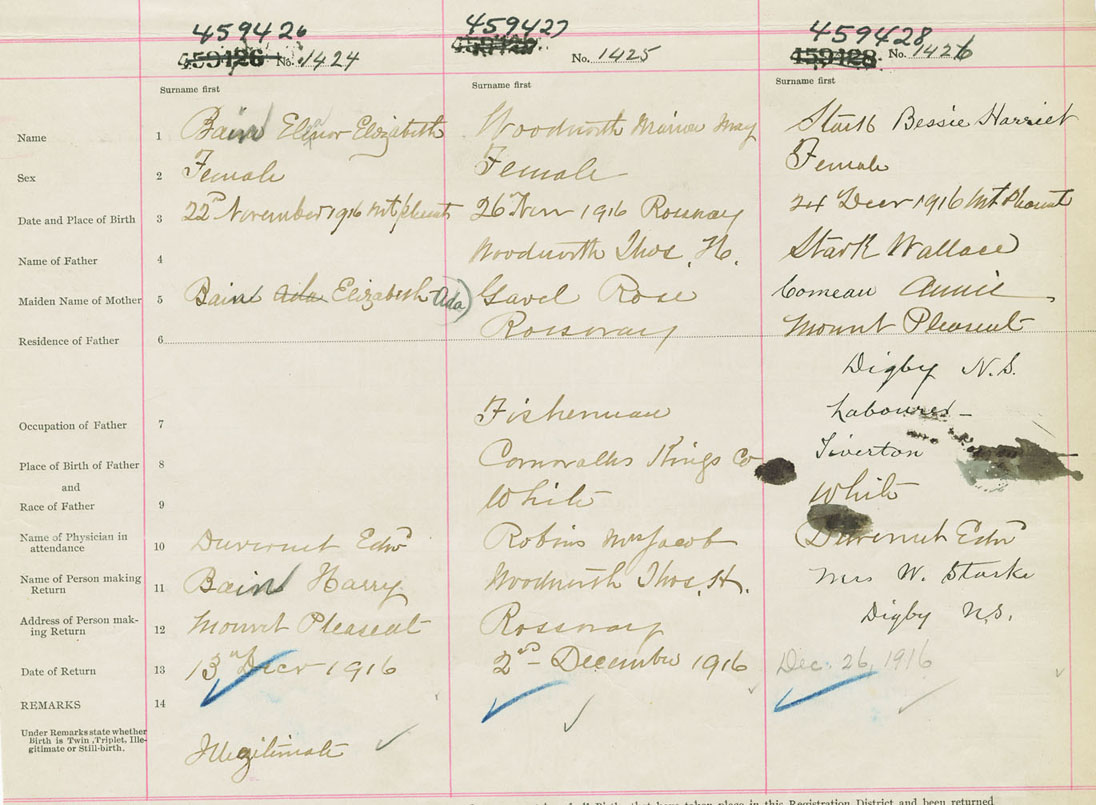 459426 459427 459428
459126 No. 1424 No. 1425 459128 No. 1426
Surname first Surname first Surname first
Name 1 Bain Elinor Elizabeth Woodworth May Stark Bessie Harriet
Sex 2 Female Female Female
Date and Place of Birth 3 22nd November 1916 Mt pleasant 26 Nov 1916 Rossway 24 Decr 1916 Mt Pleasant
Name of Father 4 Woodworth Thos. H. Stark Wallace
Maiden Name of Mother 5 Bain Ada Elizabeth Ada) Gavel Rose Comeau Annie
Residence of Father 6 Rossway Mount Pleasant
Digby N.S.
Occupation of Father 7 Fisherman Labourer
Place of Birth of Father 8 Cornwallis Kings Co Tiverton
and
Race of Father 9 White White
Name of Physician in
attendance 10 Duvernet Edwd Robins Mrs Jacob Duvernet Edwd
Name of Person making
Return 11 Bain Harry Woodworth Thos. H. Mrs W. Starke
Address of Person mak-
ing Return 12 Mount Pleasant Rossway Digby N.S.
Date of Return 13 13th Decr 1916 2nd December 1916 Dec. 26, 1916
REMARKS 14
Under Remarks state whether
Birth is Twin, Triplet, Ille-
gitimate or Still-birth. Illegitimate
Births that have taken place in this Registration District and been returned